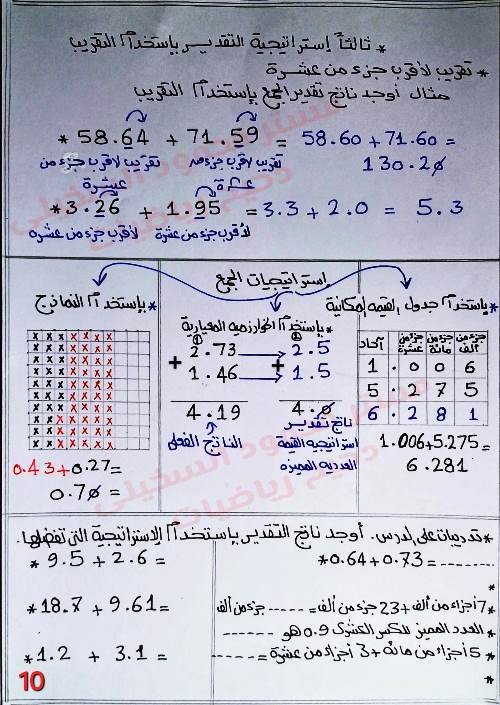 * ثالثاً إستراتيجية التقدير بإستخدام التقريب
* تقريب لأقرب جزء من عشرة
مثال أوجد ناتج تقدير الجمع بإستخدام التقريب
* 58.64 + 71.59 = 58.60 + 71.60 =
تقريب لأقرب جزء من عشرة تقريب لأقرب جزء من عشرة 130.20
* 3.26 + 1.95 = 3.3 + 2.0 = 5.3
لأقرب جزء من عشرة لأقرب جزء من عشرة
إستراتيجيات الجمع
* بإستخدام جدول القيمه المكانية
آحاد جزء من عشرة جزء من مائة جزء من ألف
1 . 0 0 6
5 . 2 7 5
6 . 2 8 1
1.006+5.275=
6.281
* بإستخدام الخوارزميه المعيارية
2.73 2.5
+ 1.46 + 1.5
4.19 4.0
الناتج الفعلى
ناتج تقدير
استراتيجيه القيمة
العدديه المميزه
* بإستخدام النماذج
0.43+0.27=
0.70
* تدريبات على الدرس. أوجد ناتج التقدير بإستخدام الإستراتيجية التى تفضلها.
* 9.5 + 2.6 =
* 18.7 + 9.61 =
* 1.2 + 3.1 =
* 0.64+0.73= --------
* 7 أجزاء من ألف + 23 جزء من ألف = ----- جزء من ألف
* العدد المميز للكسر العشرى 0.9 هو -------
* 5 أجزاء من مائة + 3 أجزاء من عشرة = -----
*
10